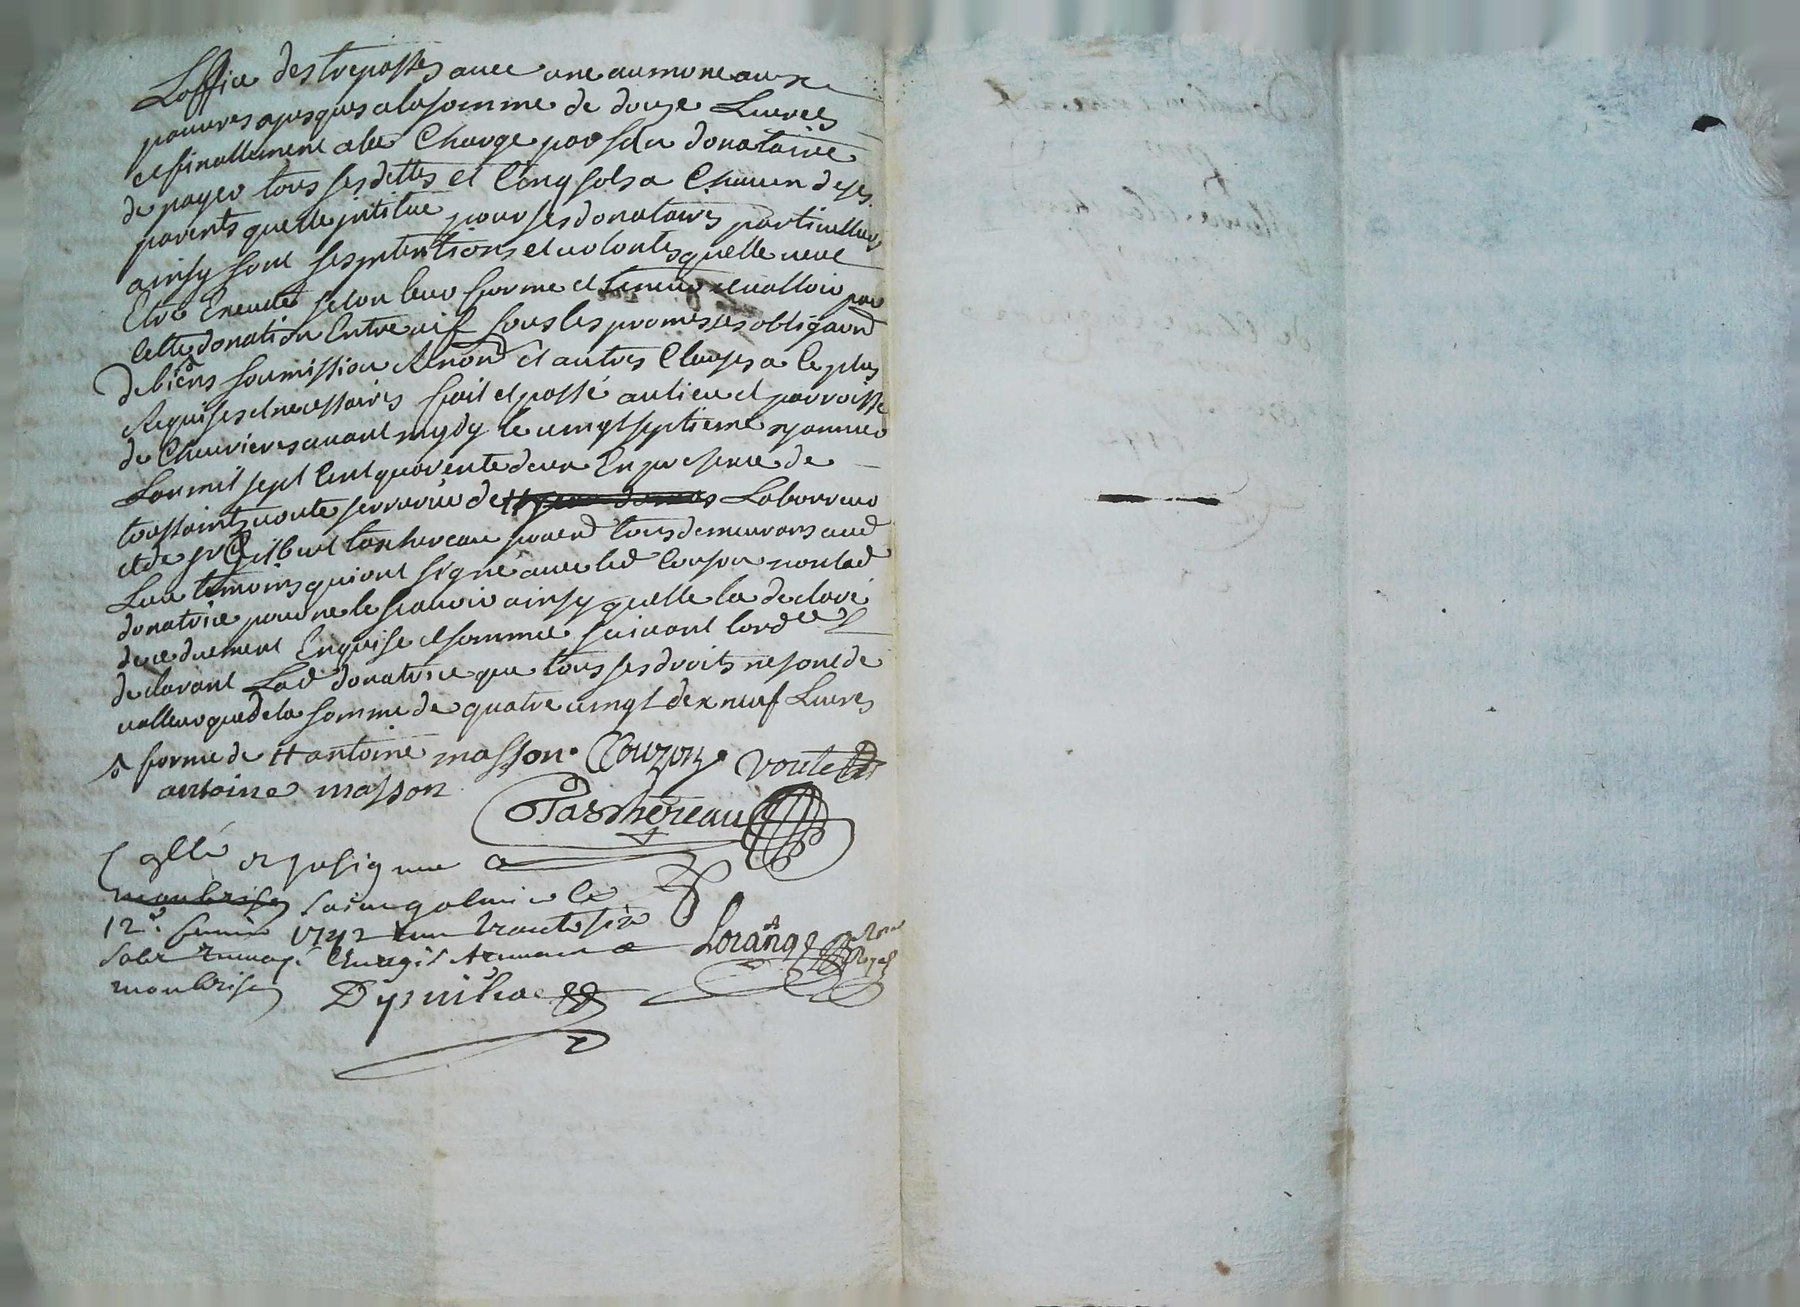 Loffice des trepassés avec une aumone aux
pauvres ajusques a la somme de douze Livres
et finallement a la Charge par sa donataire
de payer tous ses dettes et Cinq sols a Chacun de ses
parents quelle jnstitue pour ses donataires particulliers
ainsy sont ses jntentions et volontes quelle veut
Etre Executé selon leur forme et teneur et valloir par
Cette donation Entre vif sous les promesses obligaond
de biens soumission Renond et autres Clauses a ce plus
Requises et necessaires fait et passé au lieu et parroisse
de Chevrieres avant mydy le vingt septieme janvier
Lan mil sept Cent quarente deux En presence de
toussaint voute serrurier de Laboureur
et de sr Gilbert tashereau praend tous demeurans aud
Lieu temoins qui ont signé avec led Couzon non lad
donatrice pour ne le scavoir ainsy quelle la declaré
de ce duement Enquise et sommée suivant lordce
declarant Lad donatrice que tous ses droits ne sont de
valleur que de la somme de quatre vingt dix neuf Livres
s forme de # antoine masson. Couzon. voute
antoine masson
GTashereau
Collé et soigné
monbrison saint galmier le
12e fevrier 1742 trante six
sols Lorange No Royal
monbrison